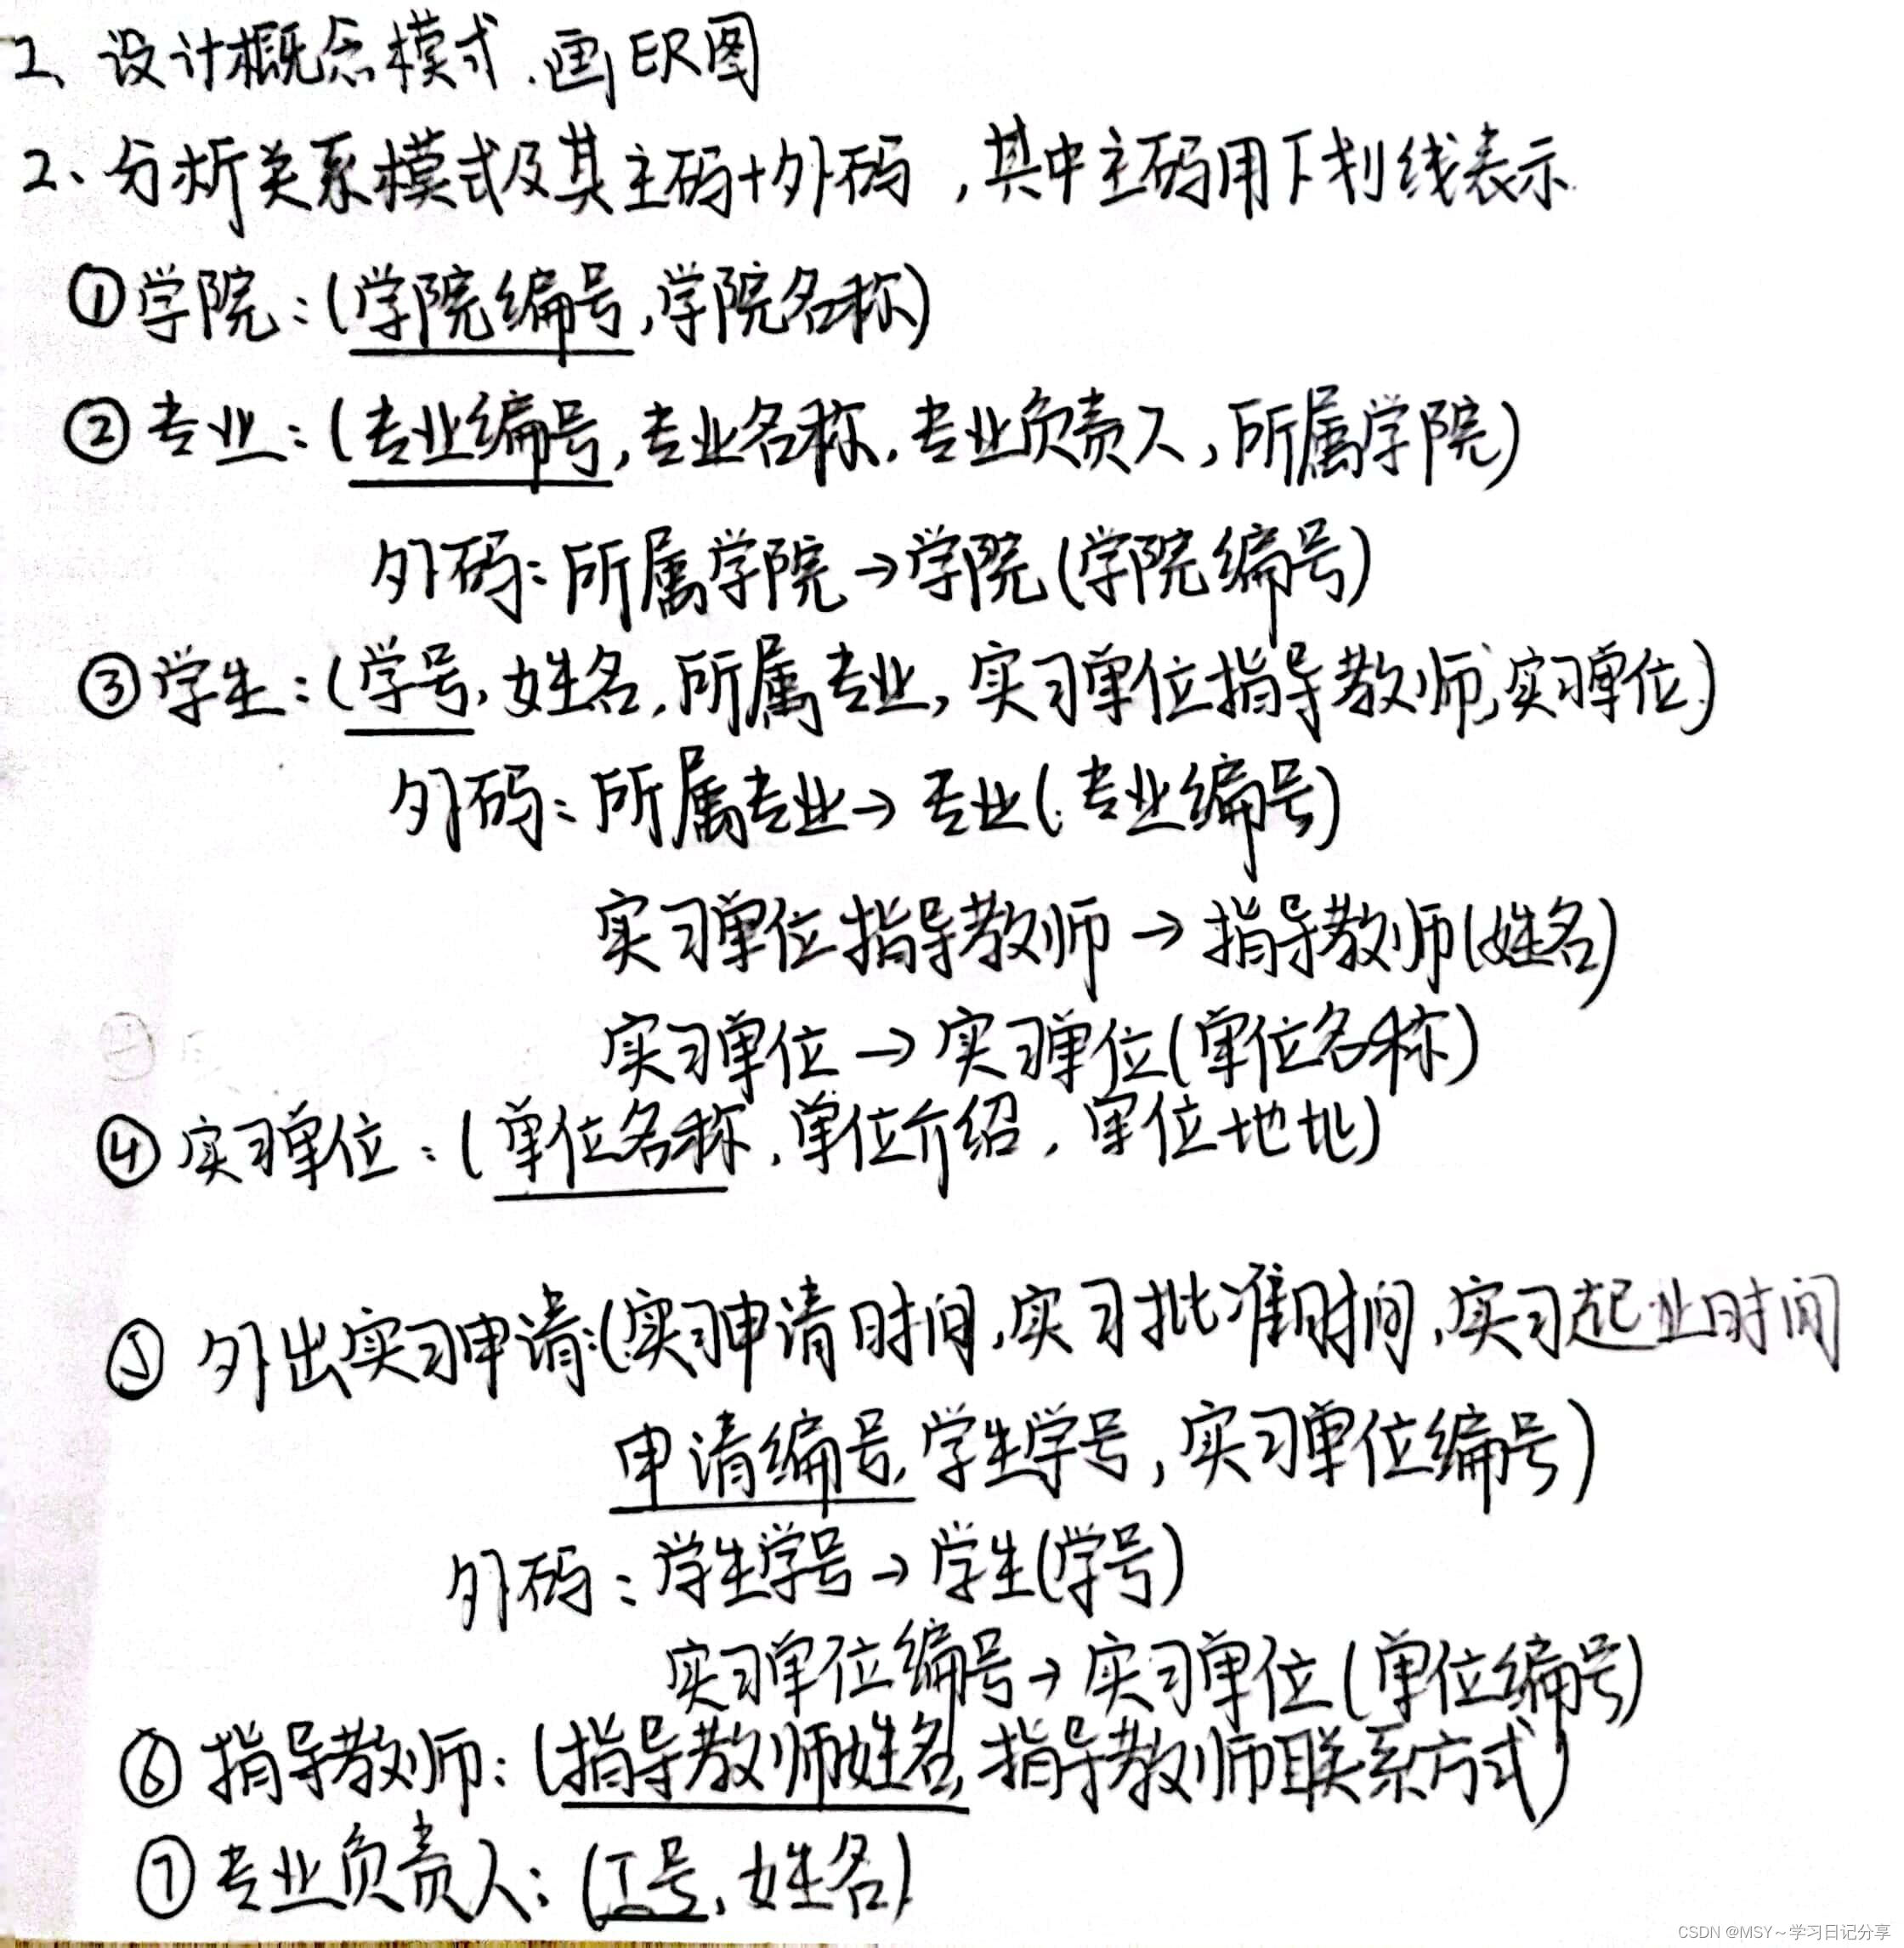 1、设计概念模式.画ER图
2、分析关系模式及其主码+外码,其中主码用下划线表示.
①学院:(学院编号,学院名称)
②专业:(专业编号,专业名称,专业负责人,所属学院)
外码:所属学院→学院(学院编号)
③学生:(学号,姓名,所属专业,实习单位指导教师,实习单位)
外码:所属专业→专业(专业编号)
实习单位指导教师→指导教师(姓名)
实习单位→实习单位(单位名称)
④实习单位:(单位名称,单位介绍,单位地址)
⑤外出实习申请:(实习申请时间,实习批准时间,实习起止时间
申请编号,学生学号,实习单位编号)
外码:学生学号→学生(学号)
实习单位编号→实习单位(单位编号)
⑥指导教师:(指导教师姓名,指导教师联系方式)
⑦专业负责人:(工号,姓名)
CSDN @MSY~学习日记分享